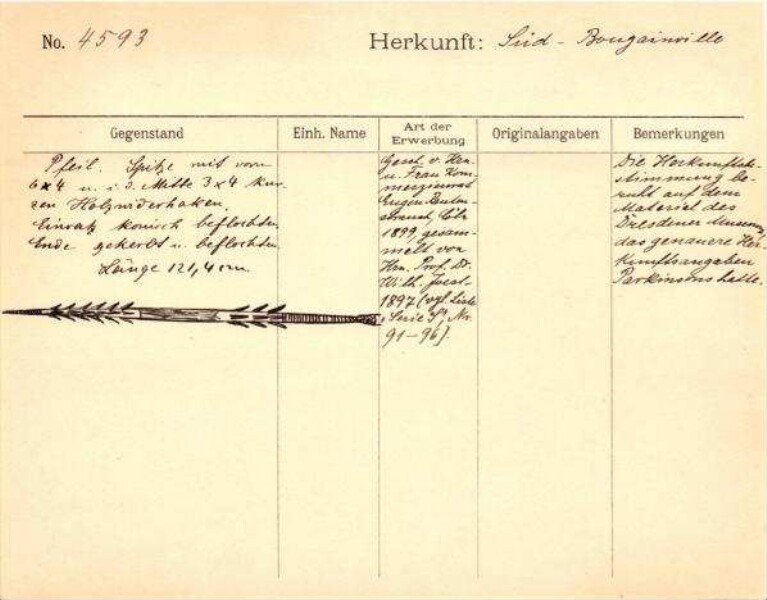 No. 4593
Herkunft: Süd - Bougainville
Gegenstand
Einh. Name
Art der
Erwerbung
Originalangaben
Bemerkungen
Pfeil. Spitze mit vorn
6x4 u. i. d. Mitte 3x4 kur-
zen Holzwiderhaken.
Einsatz konisch beflochten
Ende gekerbt u. beflochten.
Länge 121,4 cm
Gesch. v. Hrn.
u. Frau Kom-
merzienrat
Eugen Rauten-
strauch, Cöln
1899, gesam-
melt von
Hrn. Prof. Dr.
Wilh. Joest
1897 (vgl. Liste
Serie St, Nr.
91-96).
Die Herkunftsbe-
stimmung be-
ruht auf dem
Material des
Dresdener Museums,
das genauere Her-
kunftsangaben
Parkinsons hatte.